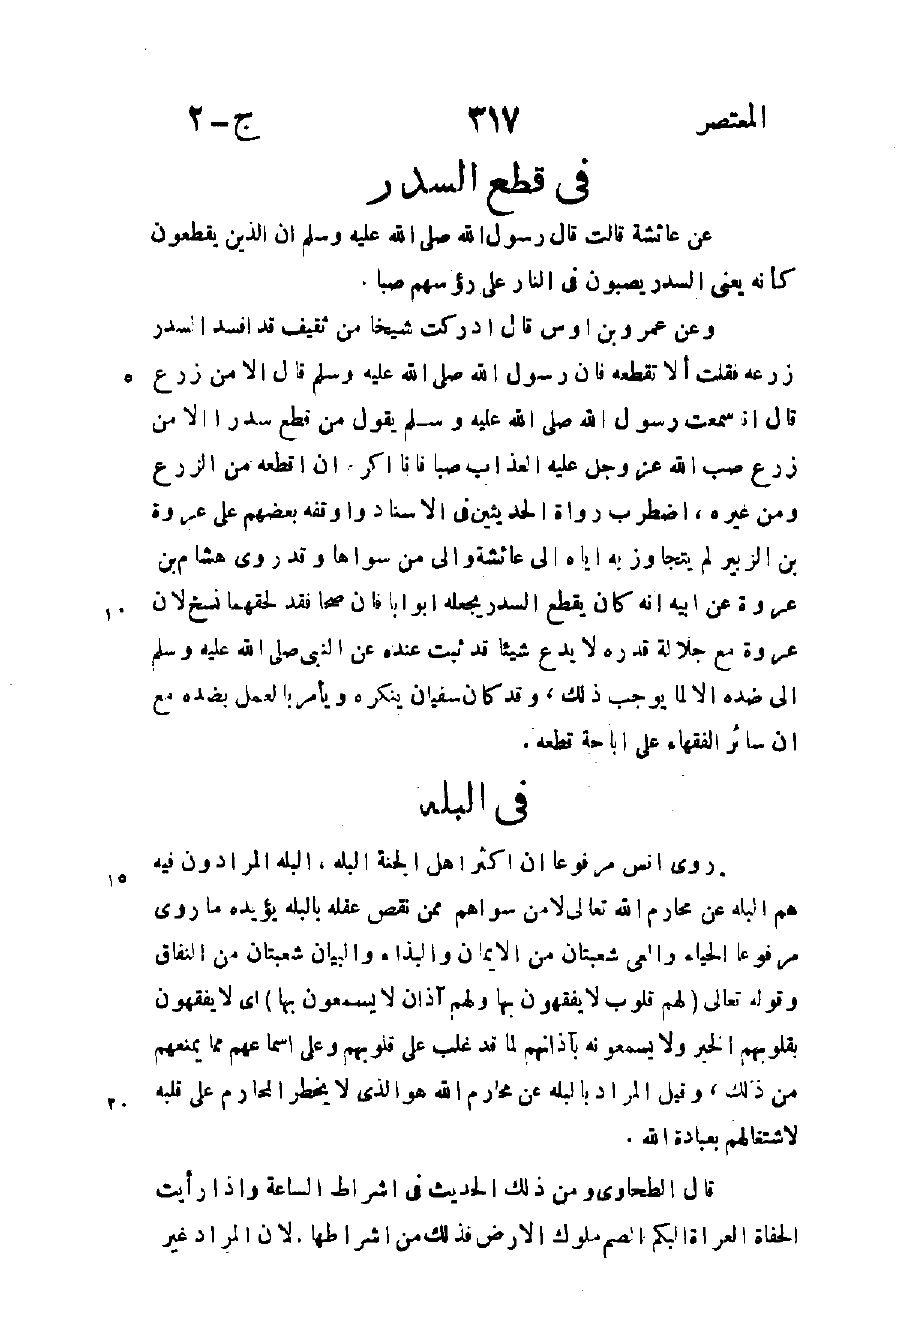 المعتصر ٣١٧ ج-٢
فى قطع السدر
عن عائشة قالت قال رسول الله صلى الله عليه وسلم ان الذين يقطعون
كأنه يعنى السدر يصبون فى النار على رؤسهم صبا .
وعن عمرو بن اوس قال ادركت شيخا من ثقيف قد افسد السدر
زرعه فقلت ألا تقطعه فان رسول الله صلى الله عليه وسلم قال الا من زرع ٥
قال انا سمعت رسول الله صلى الله عليه وسلم يقول من قطع سدرا الا من
زرع صب الله عز وجل عليه العذاب صبا فانا اكره ان اقطعه من الزرع
ومن غيره ، اضطرب رواة الحديثين فى الاسناد واوقفه بعضهم على عروة
بن الزبير لم يتجاوز به اياه الى عائشة والى من سواها وقد روى هشام بن
عروة عن ابيه انه كان يقطع السدر يجعله ابوابا فان صحا فقد لحقهما نسخ لان ١٠
عروة مع جلالة قدره لا يدع شيئا قد ثبت عنده عن النبى صلى الله عليه وسلم
الى ضده الا لما يوجب ذلك ، وقد كان سفيان ينكره ويأمر بالعمل بضده مع
ان سائر الفقهاء على اباحة قطعه .
فى البله
روى انس مرفوعا ان اكثر اهل الجنة البله ، البله المرادون فيه ١٥
هم البله عن محارم الله تعالى لا من سواهم ممن نقص عقله بالبله يؤيده ما روى
مرفوعا الحياء والعى شعبتان من الايمان والبذاء والبيان شعبتان من النفاق
وقوله تعالى (لهم قلوب لا يفقهون بها ولهم آذان لا يسمعون بها) اى لا يفقهون
بقلوبهم الخير ولا يسمعونه بآذانهم لما قد غلب على قلوبهم وعلى اسماعهم مما يمنعهم
من ذلك ، وقيل المراد بالبله عن محارم الله هو الذى لا يخطر المحارم على قلبه ٢٠
لاشتغالهم بعبادة الله .
قال الطحاوى ومن ذلك الحديث فى اشراط الساعة واذا رأيت
الحفاة العراة البكم الصم ملوك الارض فذلك من اشراطها . لان المراد غير